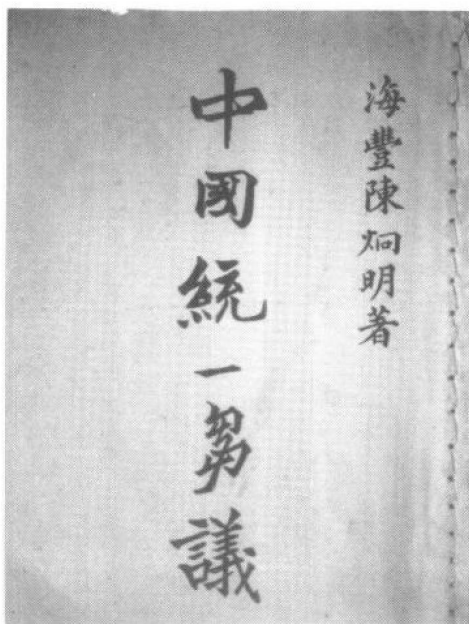 海豐陳烱明著
中國統一芻議